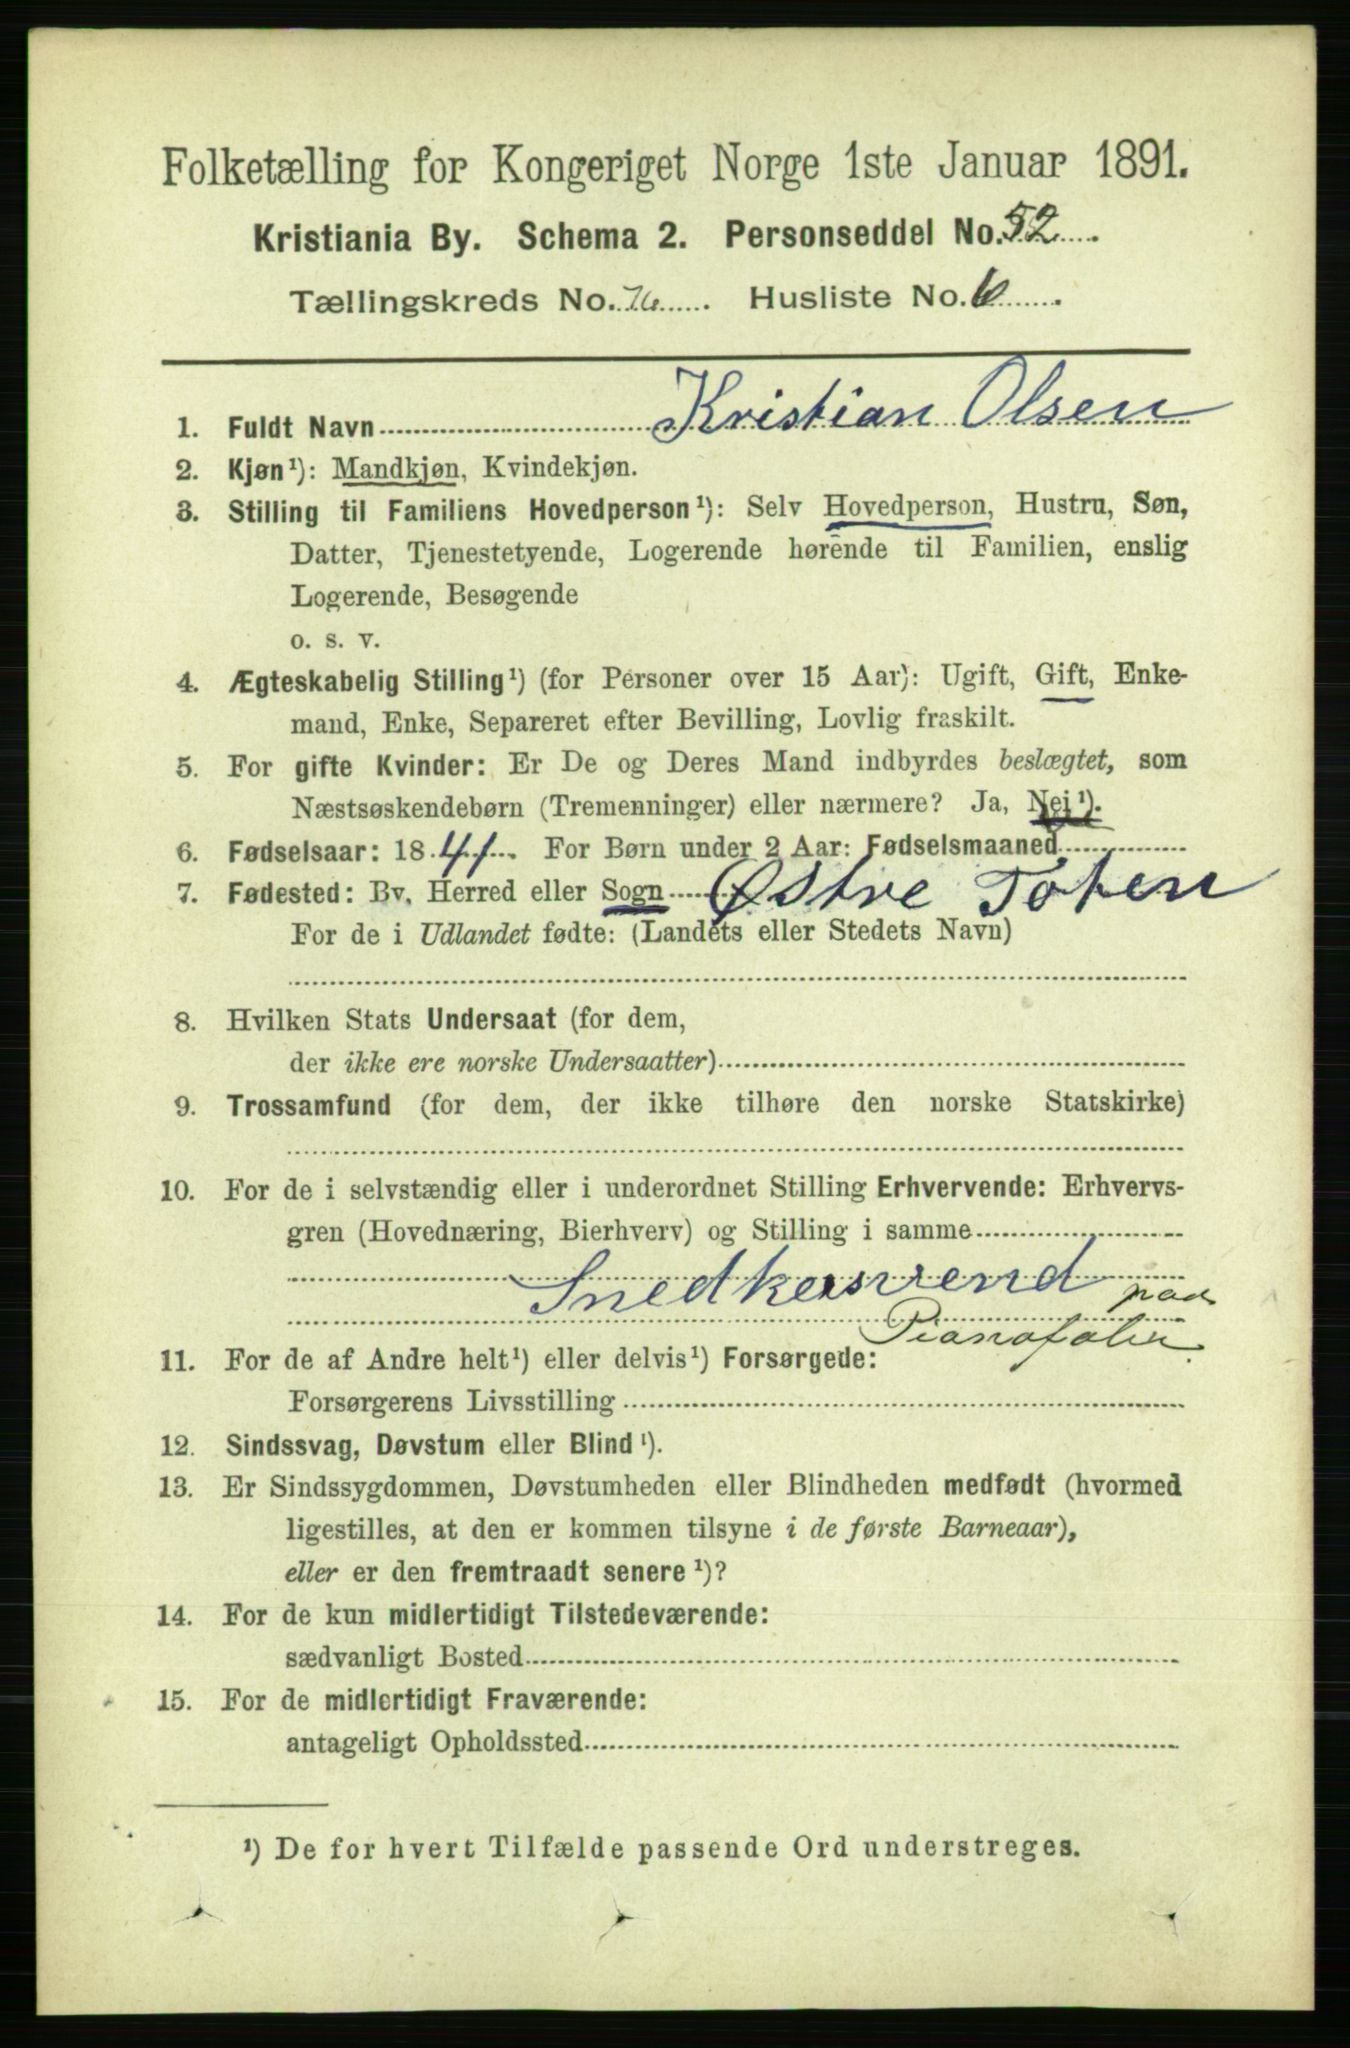 Folketælling for Kongeriget Norge 1ste Januar 1891.
Kristiania By. Schema 2. Personseddel No. 52
Tællingskreds No. 76 Husliste No. 6
1. Fuldt Navn Kristian Olsen
2. Kjøn¹): Mandkjøn, Kvindekjøn.
3. Stilling til Familiens Hovedperson¹): Selv Hovedperson, Hustru, Søn,
Datter, Tjenestetyende, Logerende hørende til Familien, enslig
Logerende, Besøgende
o. s. v.
4. Ægteskabelig Stilling¹) (for Personer over 15 Aar): Ugift, Gift, Enke-
mand, Enke, Separeret efter Bevilling, Lovlig fraskilt.
5. For gifte Kvinder: Er De og Deres Mand indbyrdes beslægtet, som
Næstsøskendebørn (Tremenninger) eller nærmere? Ja, Nei¹).
6. Fødselsaar: 1841. For Børn under 2 Aar: Fødselsmaaned
7. Fødested: By, Herred eller Sogn Østre Toten
For de i Udlandet fødte: (Landets eller Stedets Navn)
8. Hvilken Stats Undersaat (for dem,
der ikke ere norske Undersaatter)
9. Trossamfund (for dem, der ikke tilhøre den norske Statskirke)
10. For de i selvstændig eller i underordnet Stilling Erhvervende: Erhvervs-
gren (Hovednæring, Bierhverv) og Stilling i samme
Snedkersvend paa
Pianofabr.
11. For de af Andre helt¹) eller delvis¹) Forsørgede:
Forsørgerens Livsstilling
12. Sindssvag, Døvstum eller Blind¹).
13. Er Sindssygdommen, Døvstumheden eller Blindheden medfødt (hvormed
ligestilles, at den er kommen tilsyne i de første Barneaar),
eller er den fremtraadt senere¹)?
14. For de kun midlertidigt Tilstedeværende:
sædvanligt Bosted
15. For de midlertidigt Fraværende:
antageligt Opholdssted
¹) De for hvert Tilfælde passende Ord understreges.